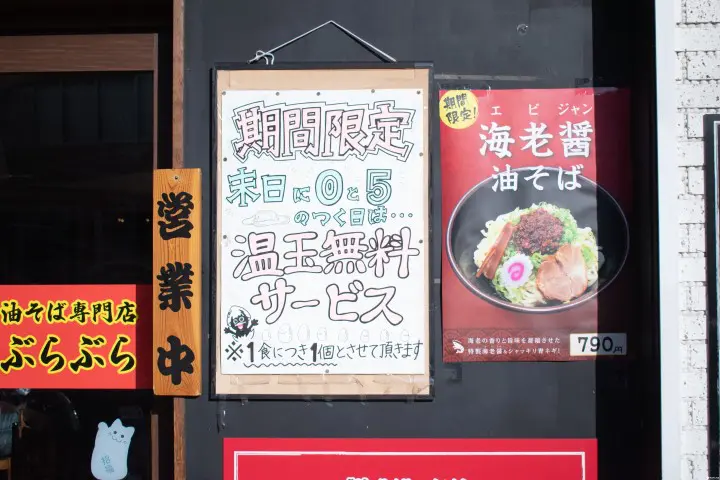 営業中
油そば専門店
ぶらぶら
期間限定
末日に0と5
のつく日は…
温玉無料
サービス
※1食につき1個とさせて頂きます
期間
限定!
エビジャン
海老醤
油そば
海老の香りと旨味を凝縮させた
特製海老醤&シャッキリ青ネギ!
790円